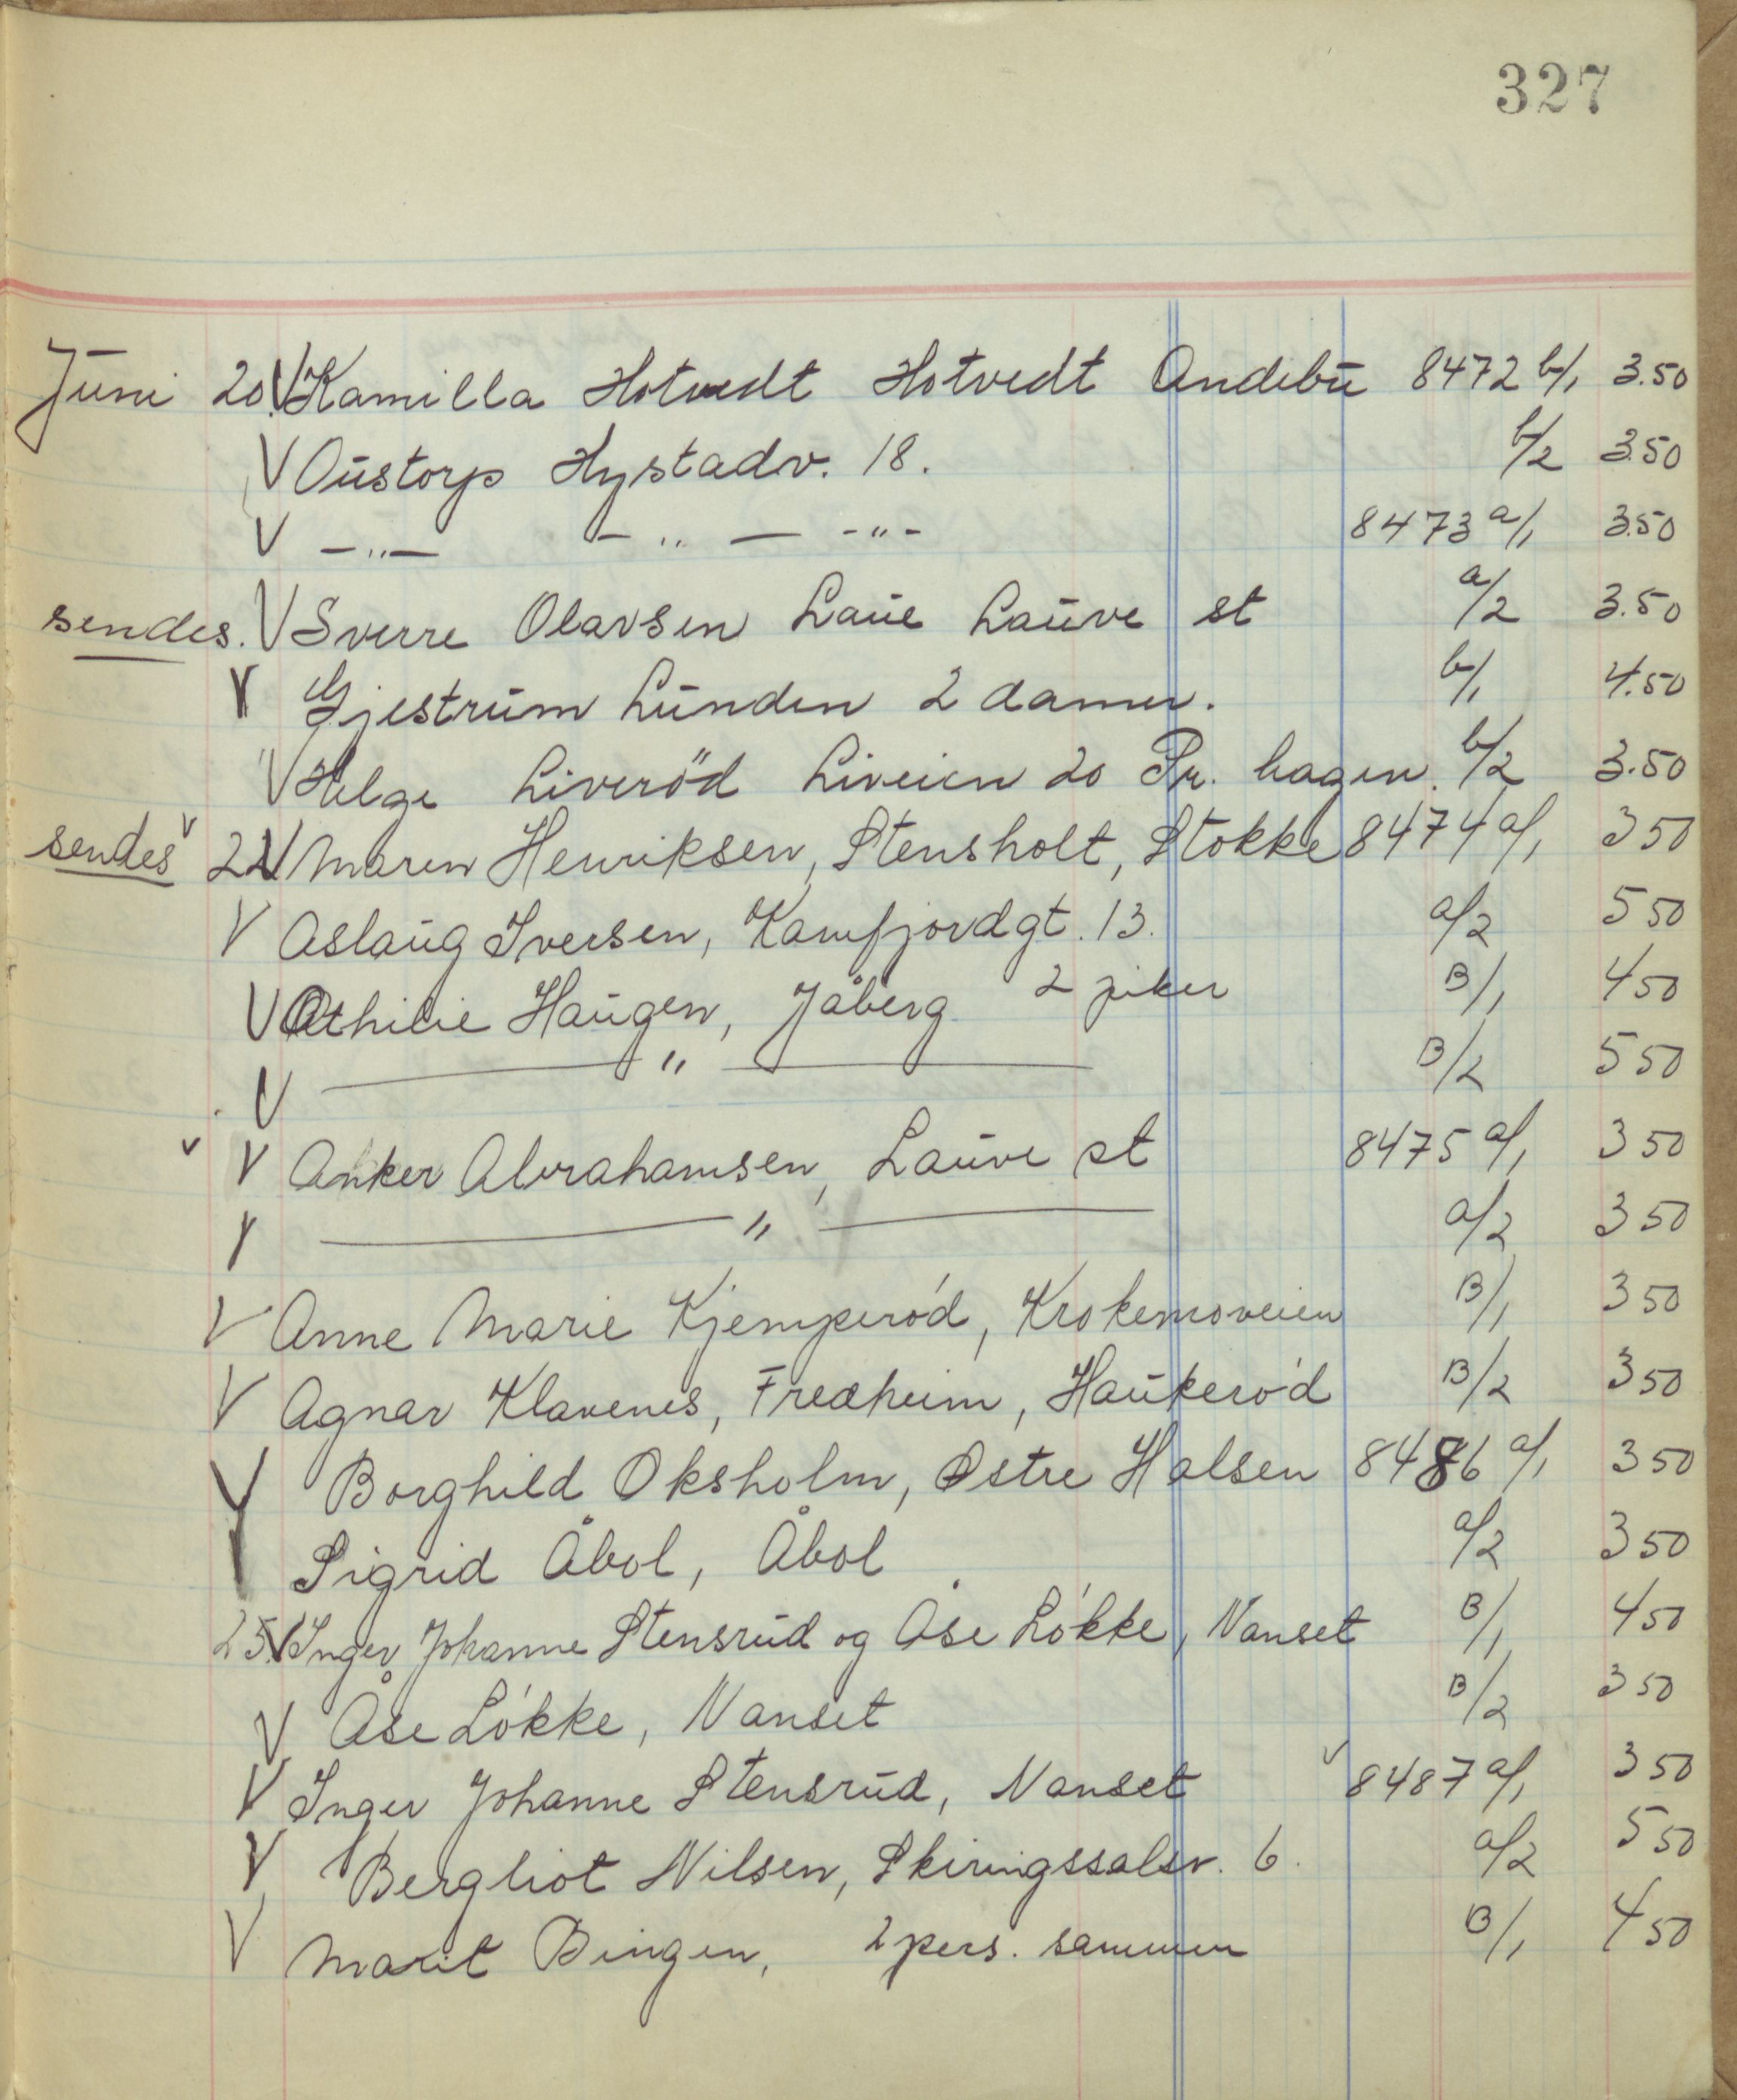 327
Juni 20. V Kamilla Hotvedt Hotvedt Andebu 8472 b/1 3.50
V Oustorp Hystadv. 18. b/2 3.50
V —„— —„— -„- 8473 a/1 3.50
sendes. V Sverre Olavsen Laue Lauve st a/2 3.50
V Gjestrum Lunden 2 damer. b/1 4.50
V Helge Liveröd Liveien 20 Pr. hagen. b/2 3.50
sendes v 22 V Maren Henriksen, Stensholt, Stokke 8474 a/1 3 50
V Aslaug Iversen, Kamfjordgt. 13. a/2 5 50
V Othilie Haugen, Jåberg 2 piker B/1 4 50
V — „ — B/2 5 50
v V Anker Abrahamsen, Lauve st 8475 a/1 3 50
V — „ — a/2 3 50
V Anne Marie Kjemperód, Krokemoveien B/1 3 50
V Agnar Klavenes, Fredheim, Haukeród B/2 3 50
V Borghild Oksholm, Østre Halsen 8486 a/1 3 50
V Sigrid Åbol, Åbol a/2 3 50
25. V Inger Johanne Stensrud og Åse Lókke, Nanset B/1 4 50
V Åse Lókke, Nanset B/2 3 50
V Inger Johanne Stensrud, Nanset v 8487 a/1 3 50
V Bergliot Nilsen, Skiringssalsv. 6. a/2 5 50
V Marit Bingen, 2 pers. sammen B/1 4 50